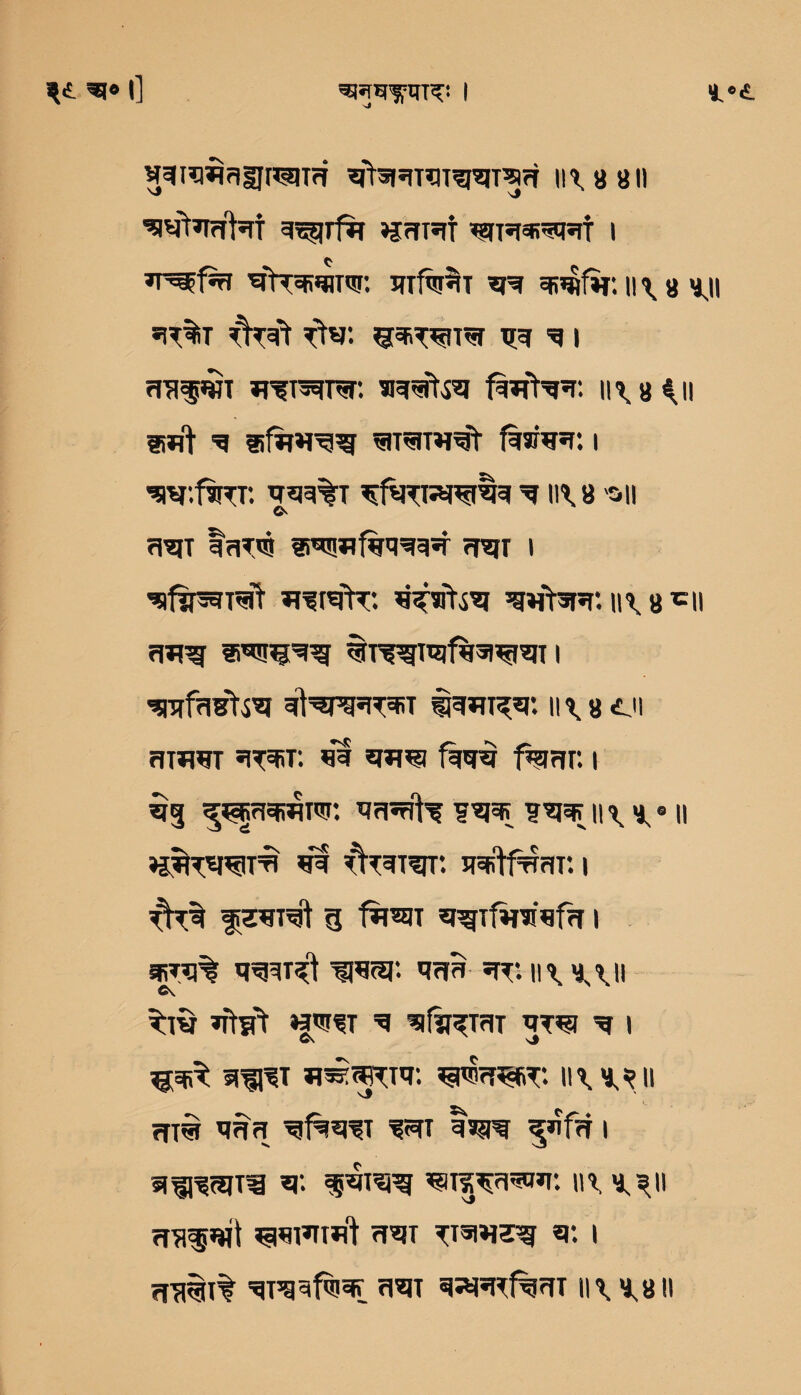 ३९ अ० ।] अनुषङ्गपादः । ५०९
॥१४४॥
अधोगतीनां वक्ष्यामि भूतानां स्थानकल्पनां ।
गच्छन्ति घोरकर्माणः प्राणिनो यत्र कर्मभिः ॥१४५॥
नरको रौरवो रोधः सूकरस्ताल एव च ।
तप्तकुम्भो महाज्वालः शवलोऽथ विमोचनः ॥१४६॥
कृमी च कृमिभक्षश्च लालाभक्षो विशंसनः ।
अधःशिराः पूयवहो रुधिरान्धस्तथैव च ॥१४७॥
तथा वैतरणं कृष्णमसिपत्रवनं तथा ।
अग्निज्वालो महाघोरः सन्दंशोऽथ श्वभोजनः ॥१४८॥
तमश्च कृष्णसूत्रश्च लोहश्चाप्यभिजस्तथा ।
अप्रतिष्ठोऽथ वीच्यश्च नरका ह्येवमादयः ॥१४९॥
तामसा नरकाः सर्वे यमस्य विषये स्थिताः ।
येषु दुष्कृतकर्माणः पतन्तीह पृथक् पृथक् ॥१५०॥
भूमेरधस्तात्ते सर्वे रौरवाद्याः प्रकीर्त्तिताः ।
रौरवे कूटसाक्षी तु मिथ्या यश्चाभिशंसति ।
क्रूरग्रहे पक्षवादी ह्यसत्यः पतते नरः ॥१५१॥
रोधे गोघ्नो भ्रूणहा च अग्निदाता पुरस्य च ।
सूकरे ब्रह्महा मज्जेत् सुरापः स्वर्णतस्करः ॥१५२॥
ताले पतेत् क्षत्रियहा हत्वा वैश्यञ्च दुर्गतिं ।
ब्रह्महत्याञ्च यः कुर्य्याद्यश्च स्याद्गुरुतल्पगः ॥१५३॥
तप्तकुम्भी स्वसागामी तथा राजभटश्च यः ।
तप्तलोहे चाश्ववणिक् तथा बन्धनरक्षिता ॥१५४॥